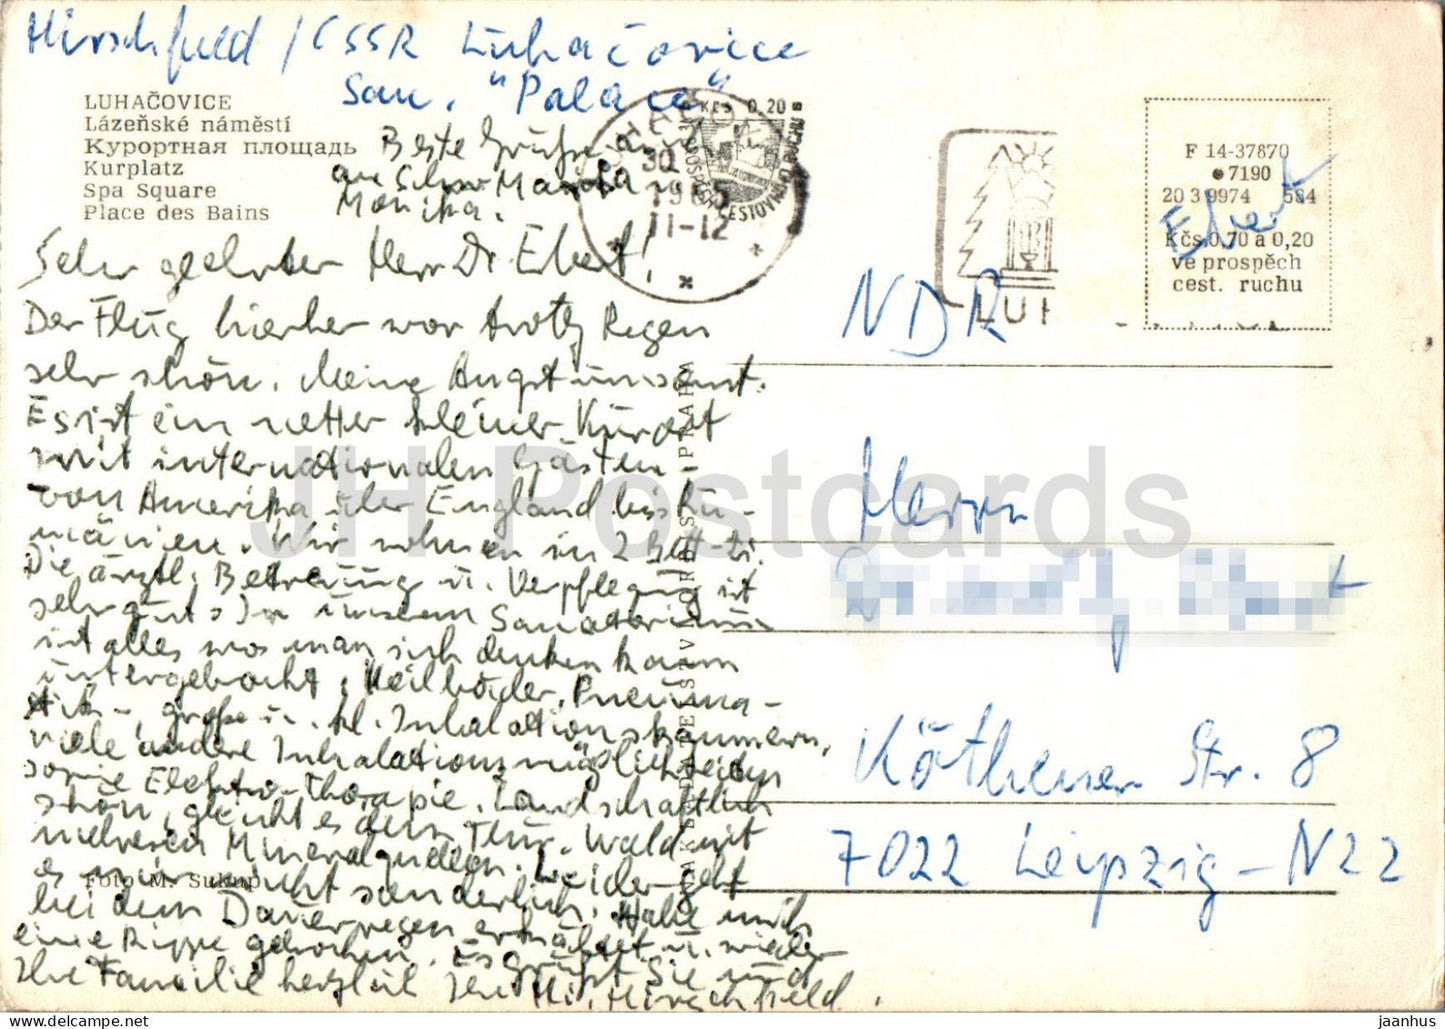 Hirschfeld / ČSSR Luhačovice
San. "Palace"
LUHAČOVICE
Lázeňské náměstí
Курортная площадь
Kurplatz
Spa Square
Place des Bains
Beste Grüße auch
an Monika.
30
1985
11-12
KČS 0.20
LUH
F 14-37870
7190
20 3 9974 584
Kčs 0,70 a 0,20
ve prospěch
cest. ruchu
Ebert
Sehr geehrter Herr Dr. Ebert!
Der Flug hierher war trotz Regen
sehr schön. Meine Angst umsonst.
Es ist ein netter kleiner Kurort
mit internationalen Gästen -
von Amerika über England bis Ru-
mänien. Wir wohnen in 2 Bett-Zi.
Die ärztl. Betreuung u. Verpflegung ist
sehr gut. In unserem Sanatorium
ist alles was man sich denken kann
untergebracht, Heilbäder, Pneuma-
tik-, große u. kl. Inhalationskammern,
viele andere Inhalationsmöglichkeiten
sowie Elektro-Therapie. Landschaftlich
schön, gleicht es dem Thür. Wald mit
mehreren Mineralquellen. Leider geht
es mir nicht sonderlich. Habe mich
bei dem Dauerregen erkältet u. wieder
eine Rippe gebrochen. Es grüßt Sie und
Ihre Familie herzlich Ihr Hirschfeld.
Foto M. Sukup
PRAHA
NDR
Herrn
Köthener Str. 8
7022 Leipzig-N22
JH Postcards
jaanhus @ www.delcampe.net